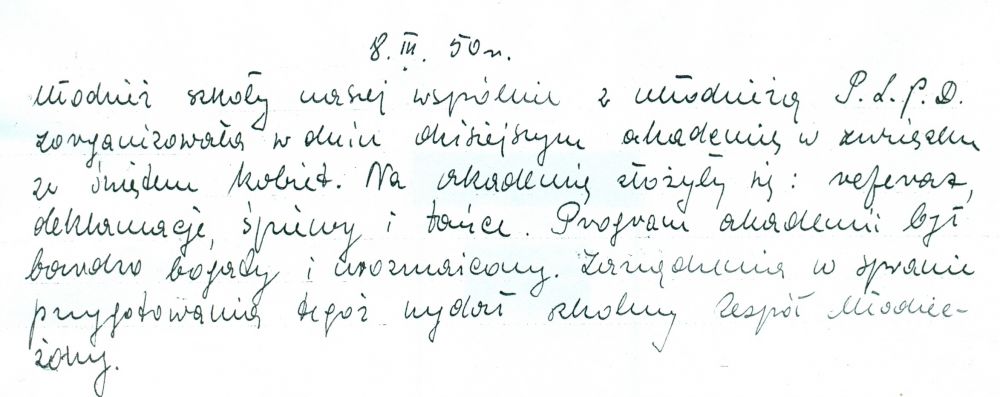 8. III. 50 r.
Młodzież szkoły naszej wspólnie z młodzieżą P.L.P.D.
zorganizowała w dniu dzisiejszym akademię w związku
ze świętem kobiet. Na akademię złożyły się: referat,
deklamacje, śpiewy i tańce. Program akademii był
bardzo bogaty i urozmaicony. Zarządzenia w sprawie
przygotowania tegoż wydał szkolny Zespół Młodzie-
żowy.